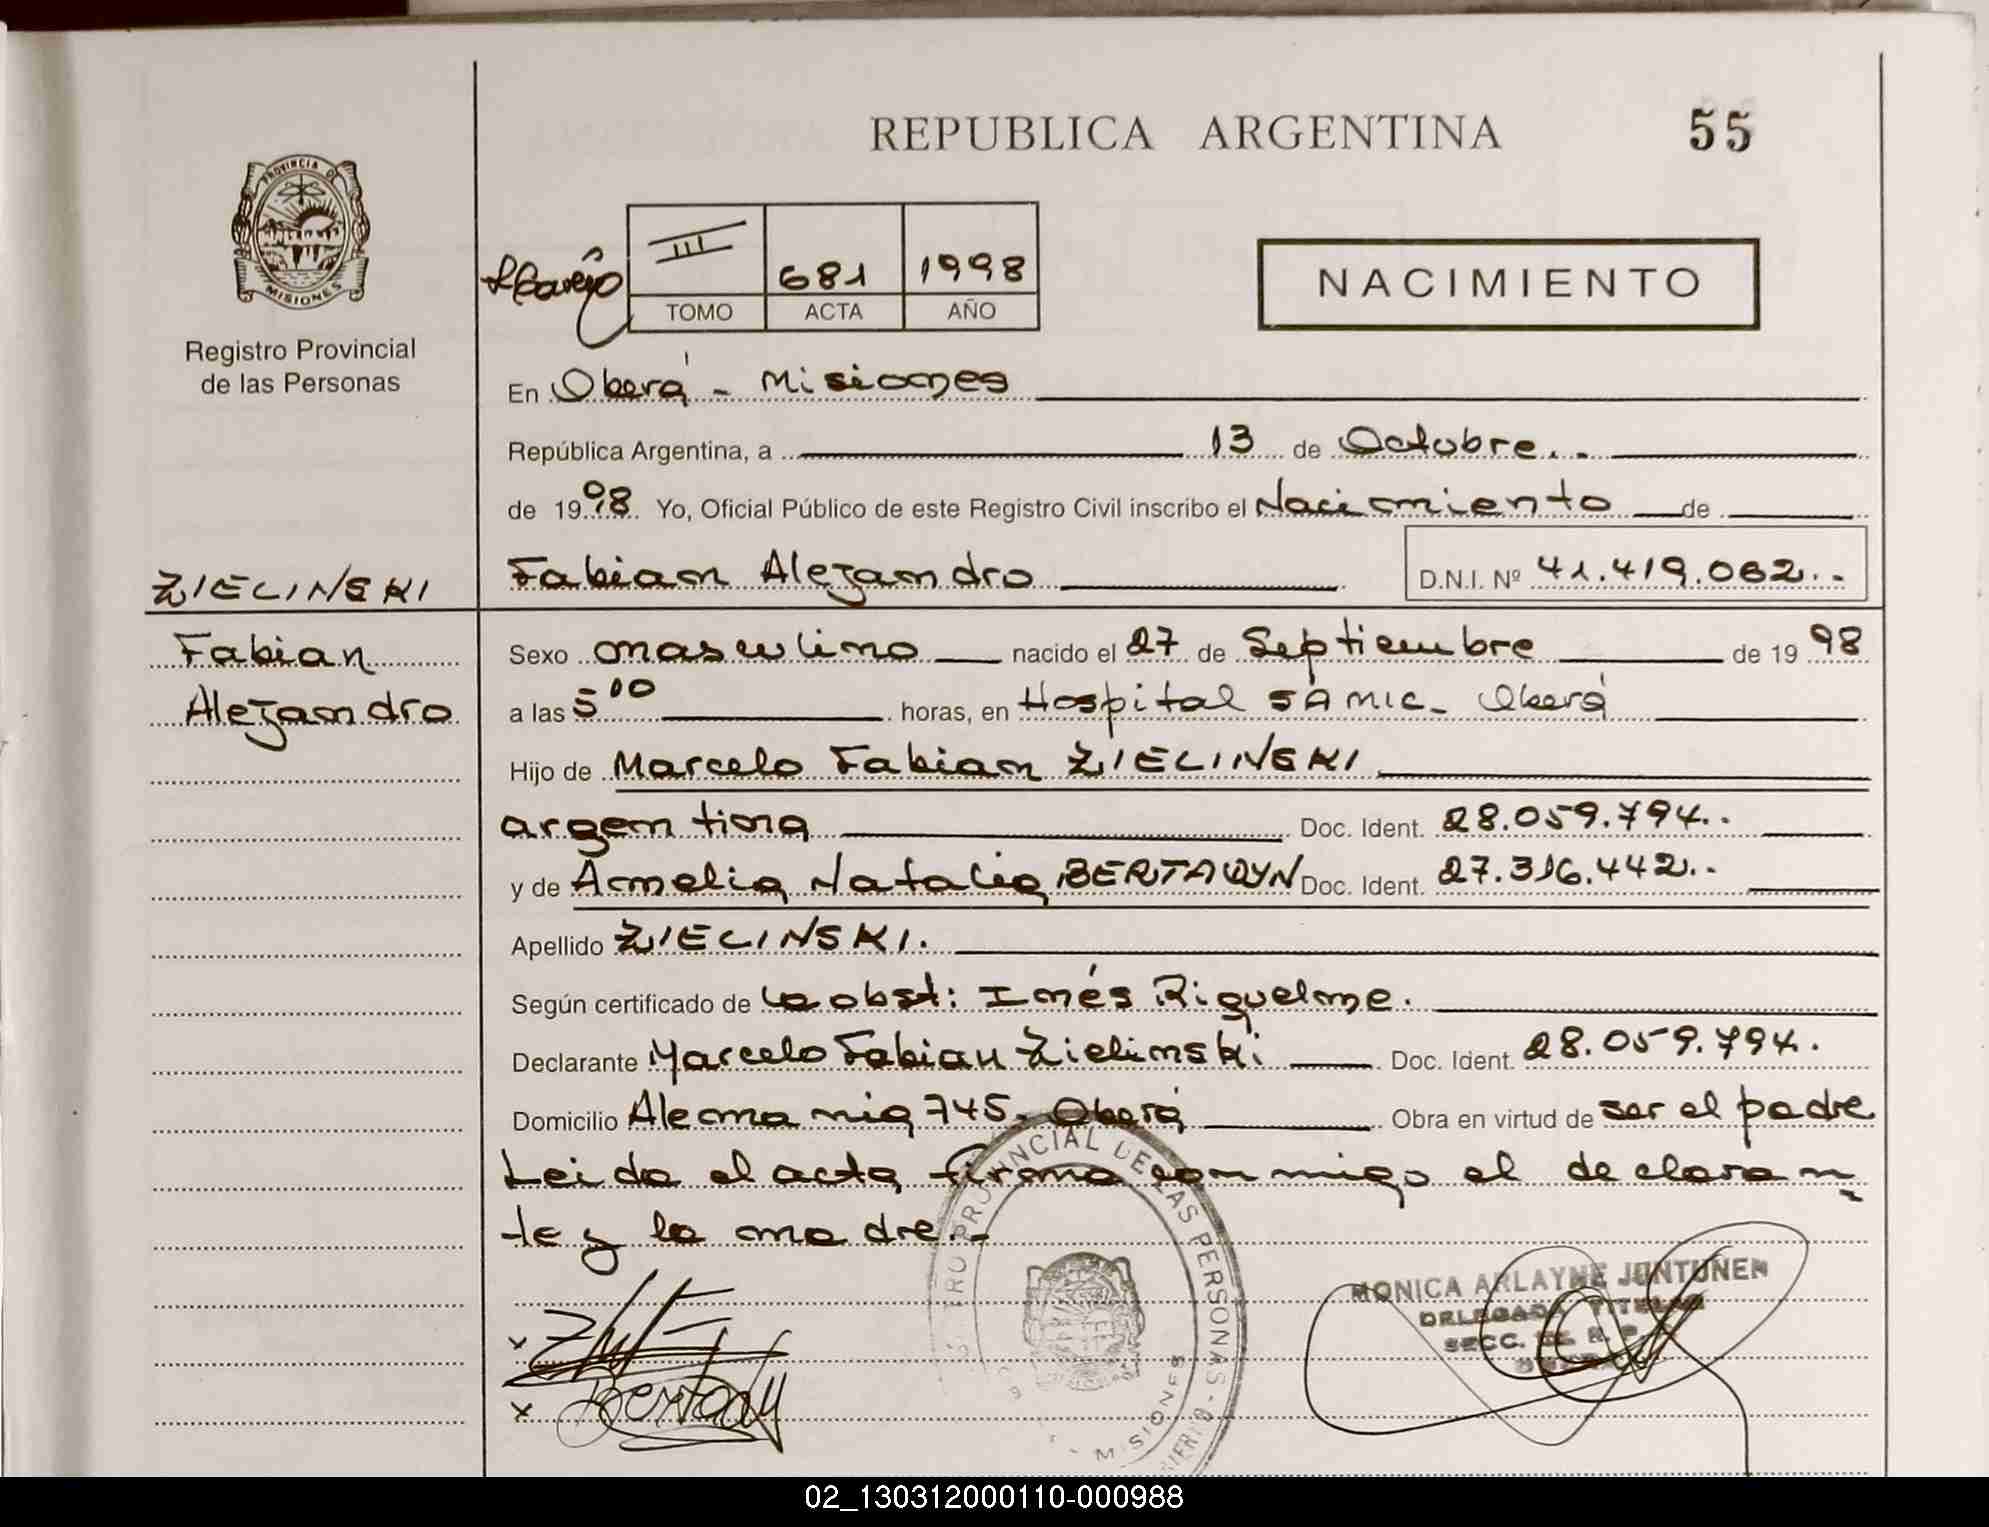 REPUBLICA ARGENTINA 55
PROVINCIA DE
MISIONES
Registro Provincial
de las Personas
III 681 1998
TOMO ACTA AÑO
NACIMIENTO
En Oberá - Misiones
República Argentina, a 13 de Octubre..
de 1998. Yo, Oficial Público de este Registro Civil inscribo el Nacimiento de
ZIELINSKI
Fabian Alejandro D.N.I. Nº 41.419.062..
Fabian
Alejandro
Sexo masculino nacido el 27 de Septiembre de 1998
a las 5 00 horas, en Hospital SAMIC - Oberá
Hijo de Marcelo Fabian ZIELINSKI
argentina Doc. Ident. 28.059.794..
y de Amelia Natalia Doc. Ident. 27.316.442..
Apellido ZIELINSKI.
Según certificado de la obst: Inés Riquelme.
Declarante Marcelo Fabian Zielinski Doc. Ident. 28.059.794.
Domicilio Alemania 745. Oberá Obra en virtud de ser el padre
Leida el acta firma conmigo el declaran
te y la madre.-
PROVINCIAL DE LAS PERSONAS
MISIONES
MONICA ARLAYNE JUNTUNEN
DELEGADA TITULAR
02_130312000110-000988